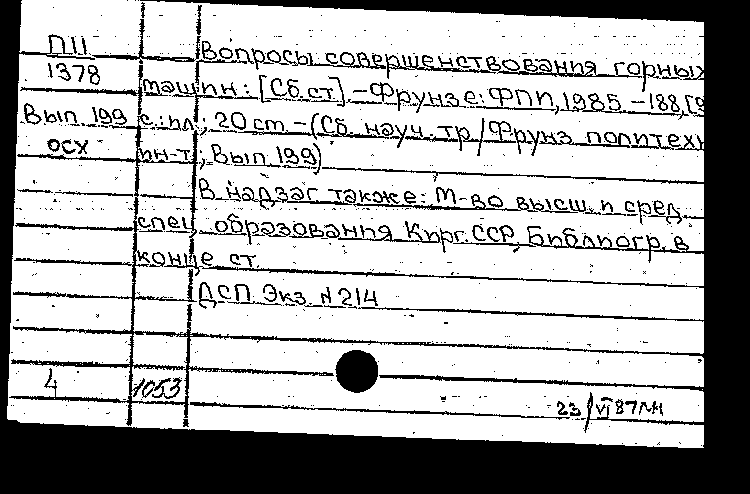 П11
1378
Вып. 199
осх
Вопросы совершенствования горных
машин: [Сб.ст]. – Фрунзе: ФПИ, 1985. – 188,[9
с.: ил.; 20 см. – (Сб. науч. тр./Фрунз. политехн
ин-т; Вып. 199)
В надзаг. также: М-во высш. и сред.
спец. образования Кирг. ССР, Библиогр. в
конце ст.
ДСП. Экз. №214
4
1053
23/VI 87